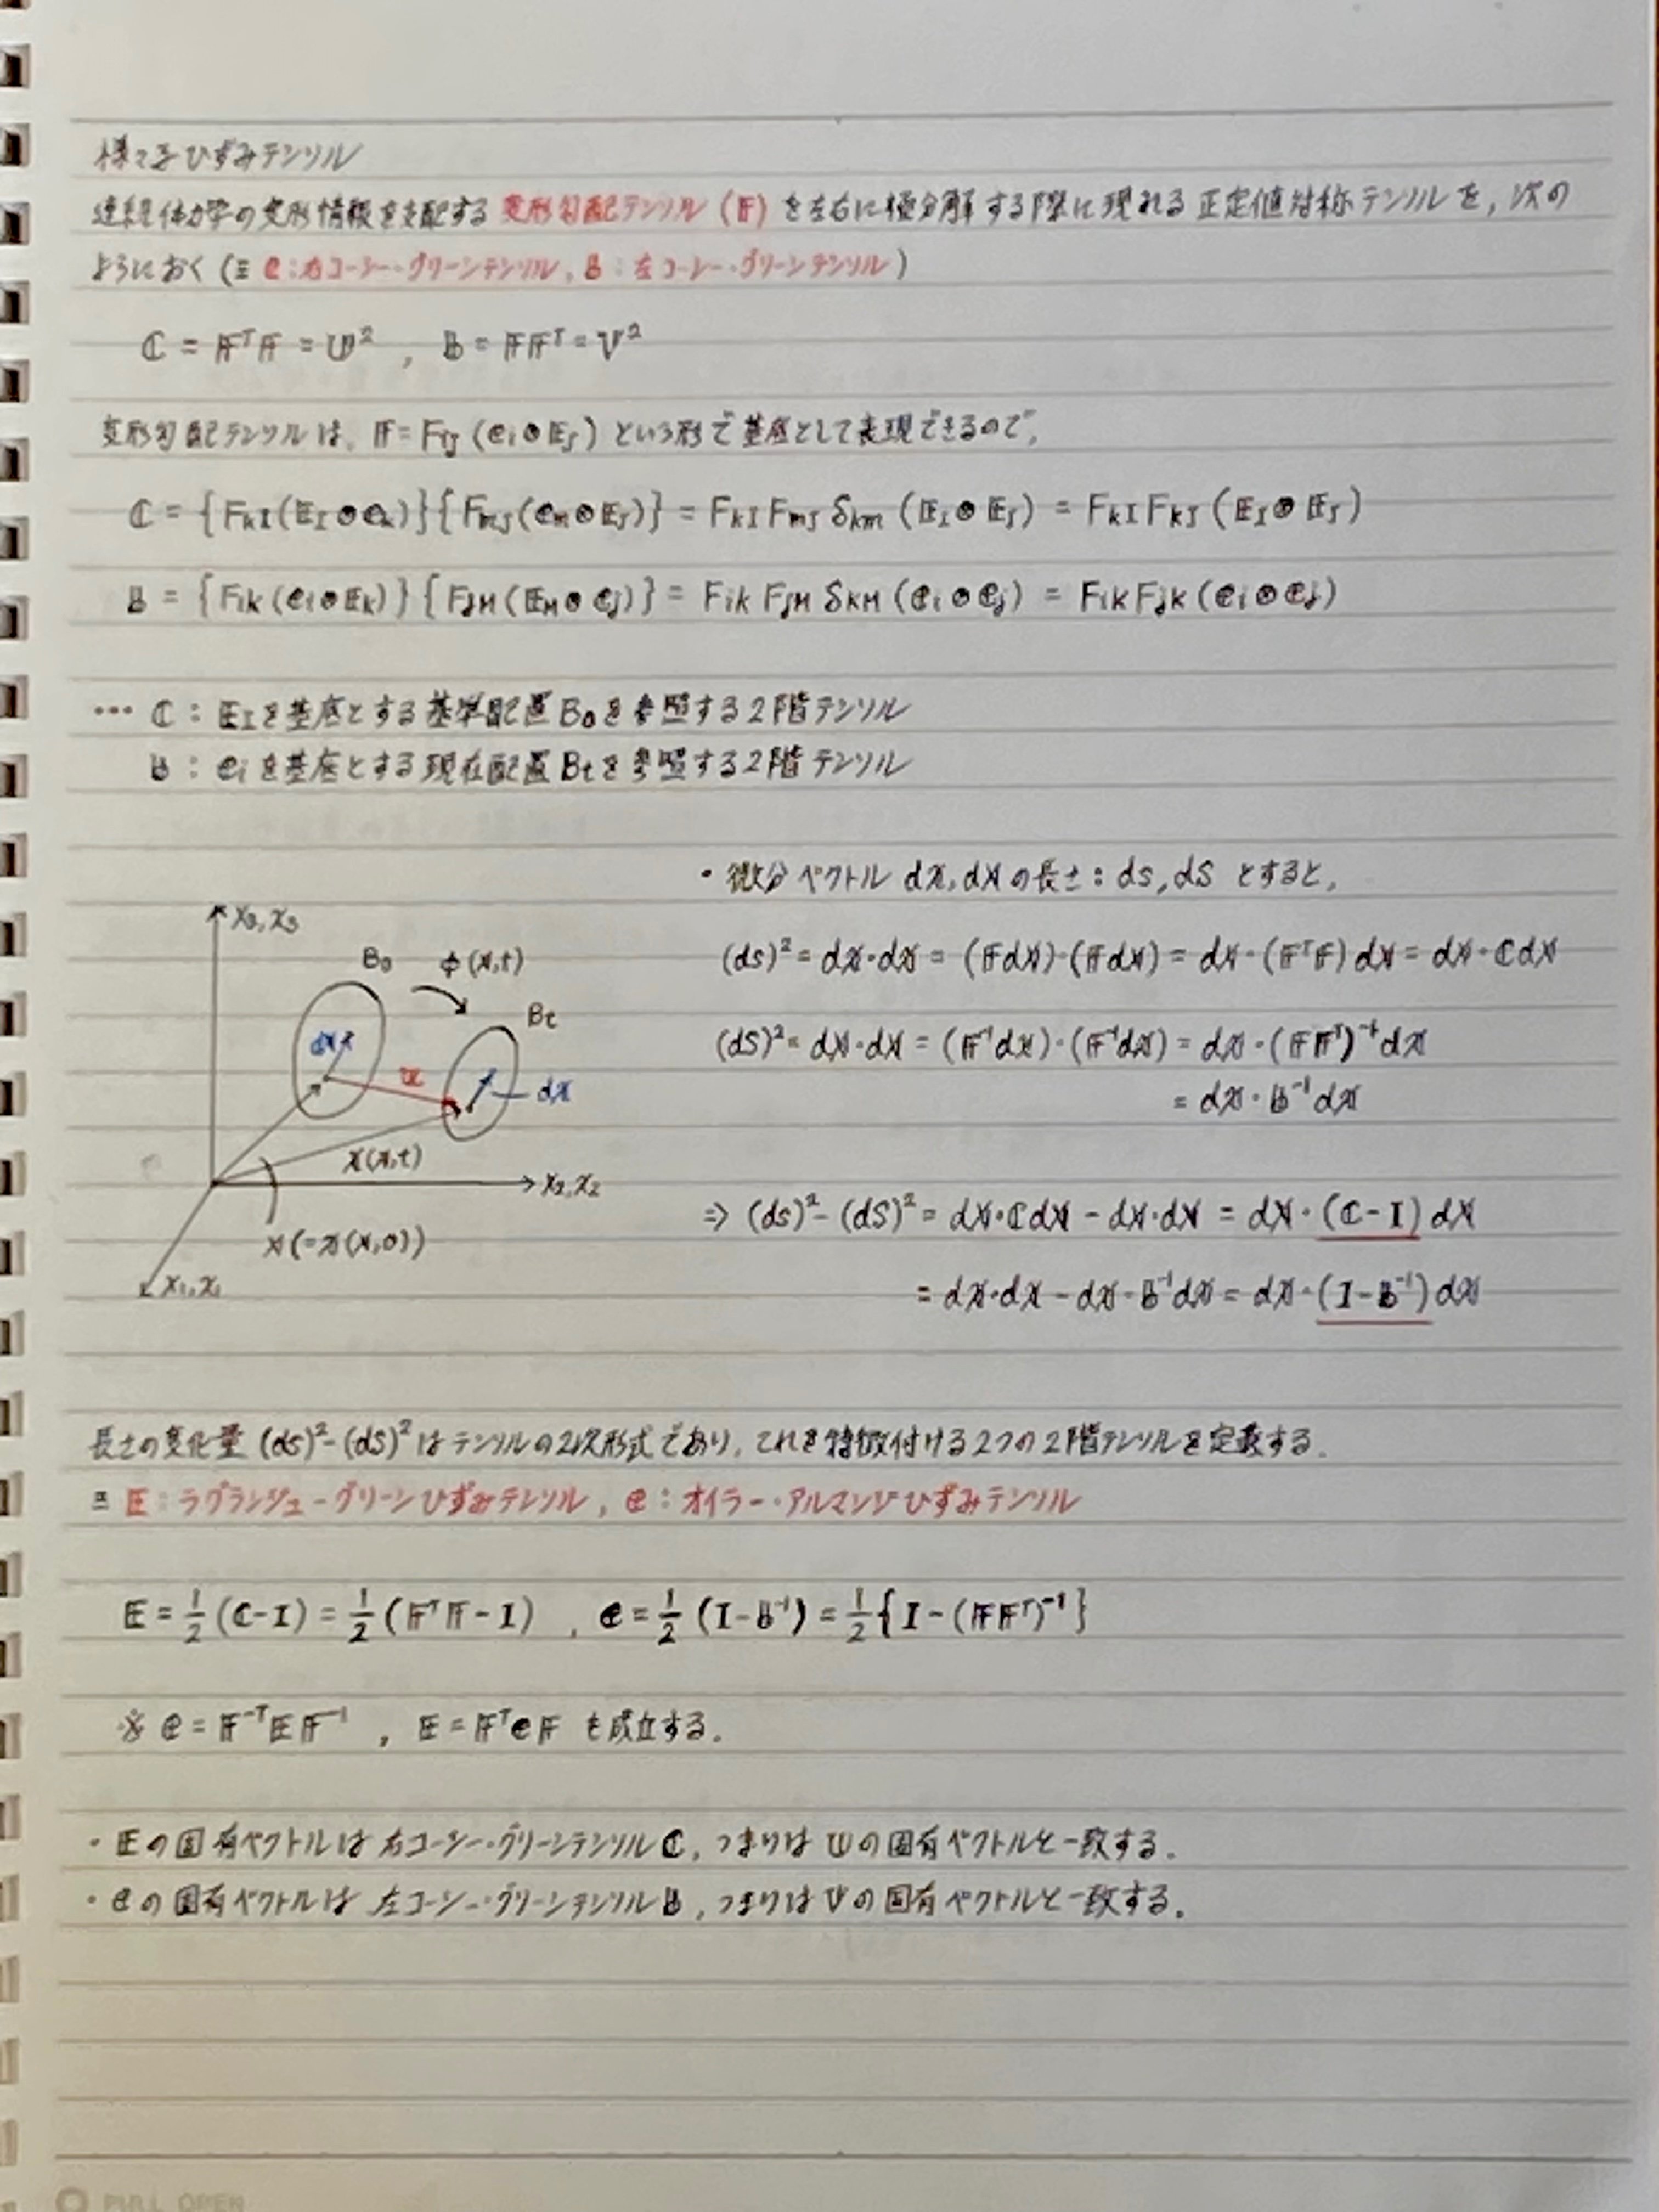 様々なひずみテンソル
連続体力学の変形情報を支配する変形勾配テンソル(F)を左右に極分解する際に現れる正定値対称テンソルを, 次の
ようにおく (≡ C:右コーシー・グリーンテンソル, b:左コーシー・グリーンテンソル)
C = FᵀF = U² , b = FFᵀ = V²
変形勾配テンソルは, F = FiJ (ei⊗EJ) という形で基底として表現できるので,
C = {FkI(EI⊗ek)}{FmJ(em⊗EJ)} = FkI FmJ δkm (EI⊗EJ) = FkI FkJ (EI⊗EJ)
b = {FiK(ei⊗EK)}{FjM(EM⊗ej)} = FiK FjM δKM (ei⊗ej) = FiK FjK (ei⊗ej)
… C : EIを基底とする基準配置B₀を参照する2階テンソル
b : eiを基底とする現在配置Btを参照する2階テンソル
・微分ベクトル dx, dXの長さ : ds, dS とすると,
(ds)² = dx・dx = (FdX)・(FdX) = dX・(FᵀF)dX = dX・CdX
(dS)² = dX・dX = (F⁻¹dx)・(F⁻¹dx) = dx・(FFᵀ)⁻¹dx
= dx・b⁻¹dx
⇒ (ds)² - (dS)² = dX・CdX - dX・dX = dX・(C-I)dX
= dx・dx - dx・b⁻¹dx = dx・(I-b⁻¹)dx
X₃, x₃
B₀
φ(X,t)
Bt
dX
u
dx
x(X,t)
X₂, x₂
X(=x(X,0))
X₁, x₁
長さの変化量 (ds)² - (dS)² はテンソルの2次形式であり, これを特徴付ける2つの2階テンソルを定義する.
≡ E : ラグランジュ-グリーンひずみテンソル, e : オイラー・アルマンジひずみテンソル
E = 1/2 (C-I) = 1/2 (FᵀF - I) , e = 1/2 (I-b⁻¹) = 1/2 {I-(FFᵀ)⁻¹}
※ e = F⁻ᵀEF⁻¹ , E = FᵀeF も成立する.
・Eの固有ベクトルは右コーシー・グリーンテンソルC, つまりはUの固有ベクトルと一致する.
・eの固有ベクトルは左コーシー・グリーンテンソルb, つまりはVの固有ベクトルと一致する.
PULL OPEN